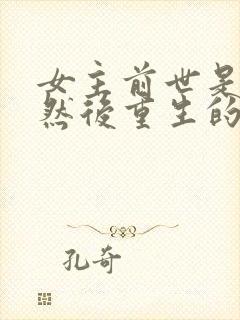 女主前世是
然後重生的
孔奇